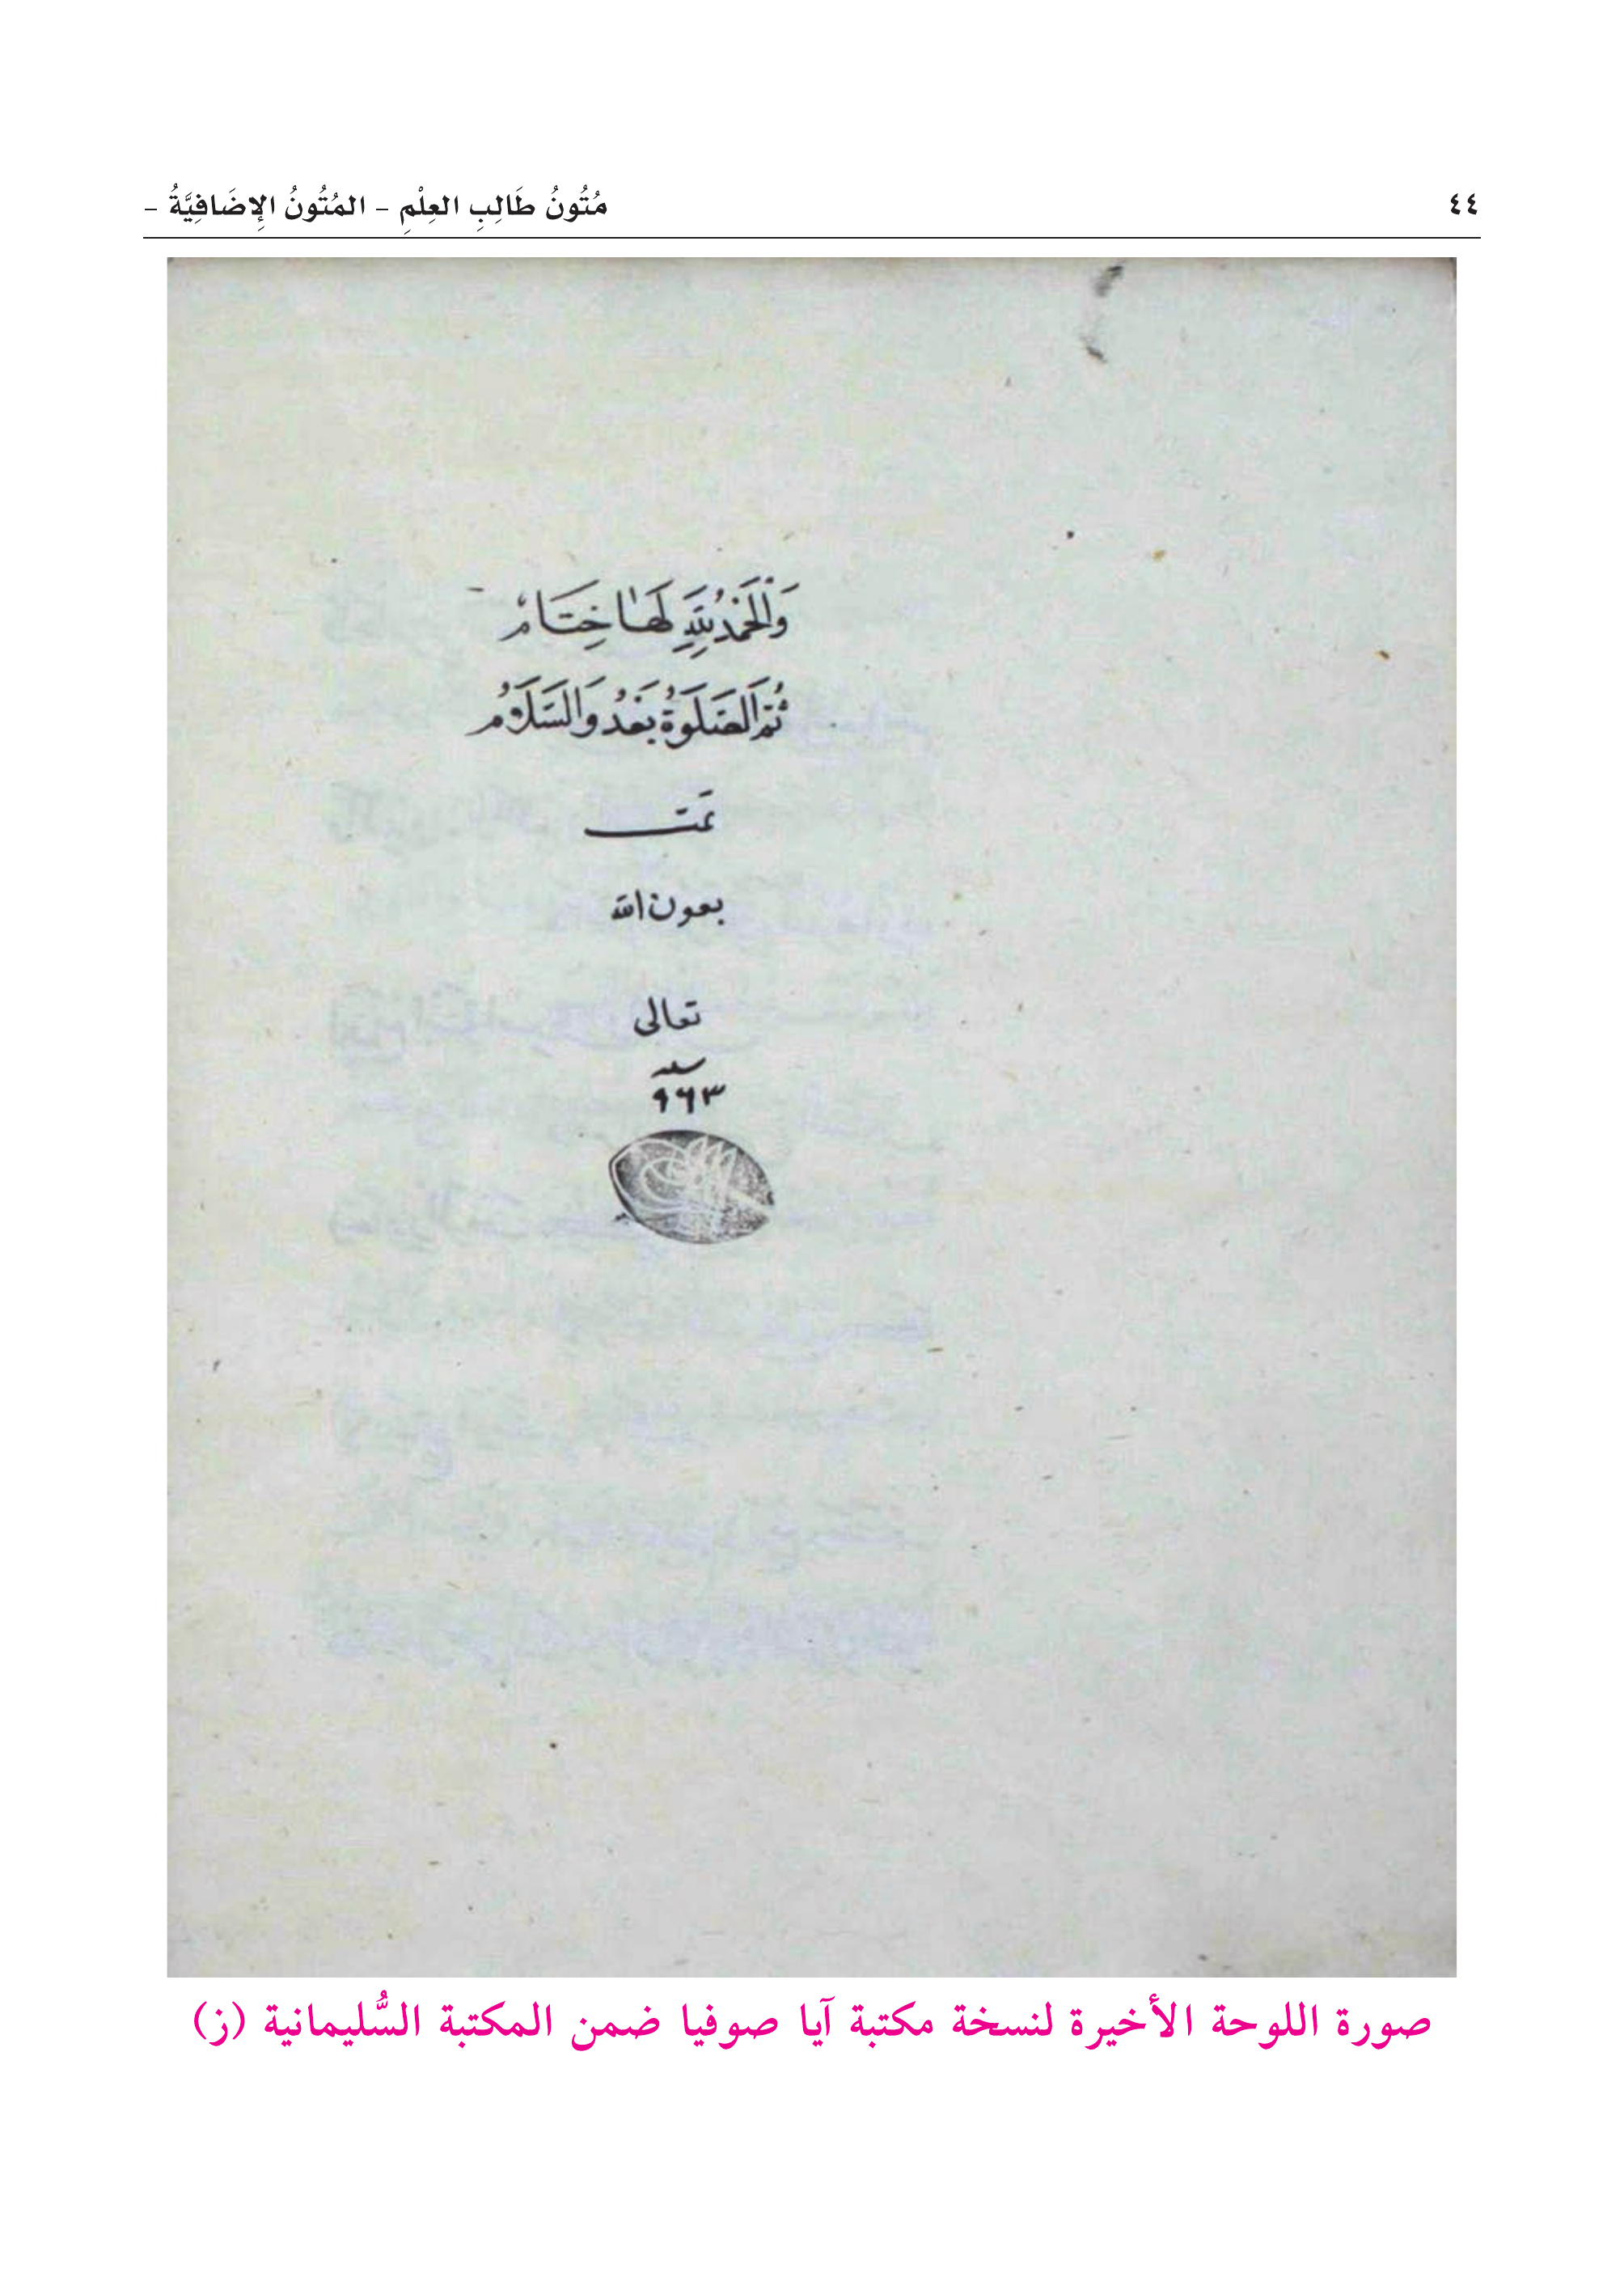 ٤٤
مُتُونُ طَالِبِ العِلْمِ - المُتُونُ الإِضَافِيَّةُ -
وَالْحَمْدُ لِلّٰهِ لَهَا خِتَامُ
ثُمَّ الصَّلَوةُ بَعْدُ وَالسَّلَامُ
تمت
بعون الله
تعالى
سنه
٩٦٣
صورة اللوحة الأخيرة لنسخة مكتبة آيا صوفيا ضمن المكتبة السُّليمانية (ز)